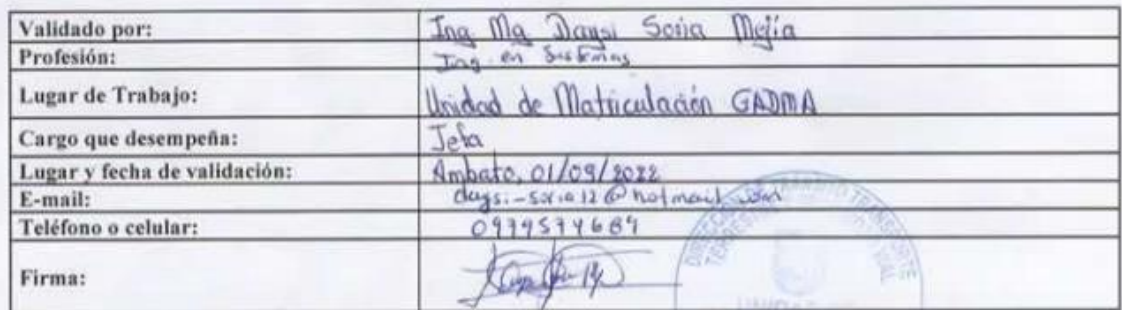 Validado por: Ing. Mg. Daysi Soria Mejía
Profesión: Ing. en Sistemas
Lugar de Trabajo: Unidad de Matriculación GADMA
Cargo que desempeña: Jefa
Lugar y fecha de validación: Ambato, 01/09/2022
E-mail:
Teléfono o celular:
Firma:
TRANSPORTE